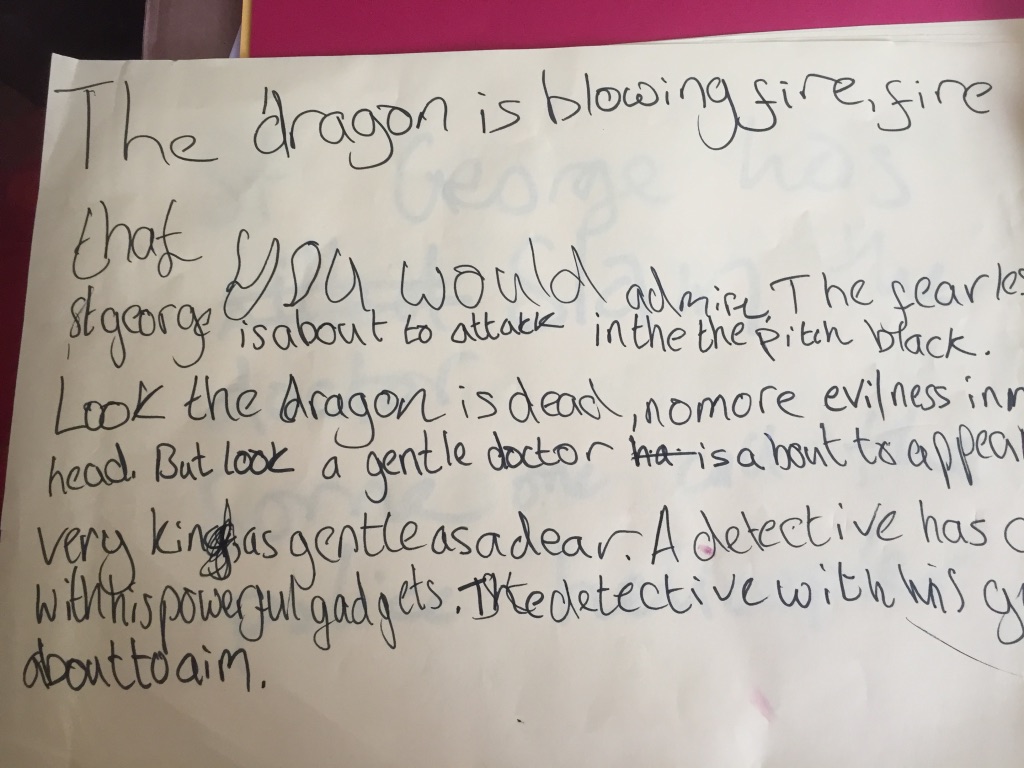 The dragon is blowing fire, fire
that you would admire, The fearles
st george is about to attack in the the pitch black.
Look the dragon is dead, no more evilness in
head. But look a gentle doctor ha is about to appear
very kind as gentle as a dear. A detective has
with his powerful gadgets. The detective with his
about to aim.